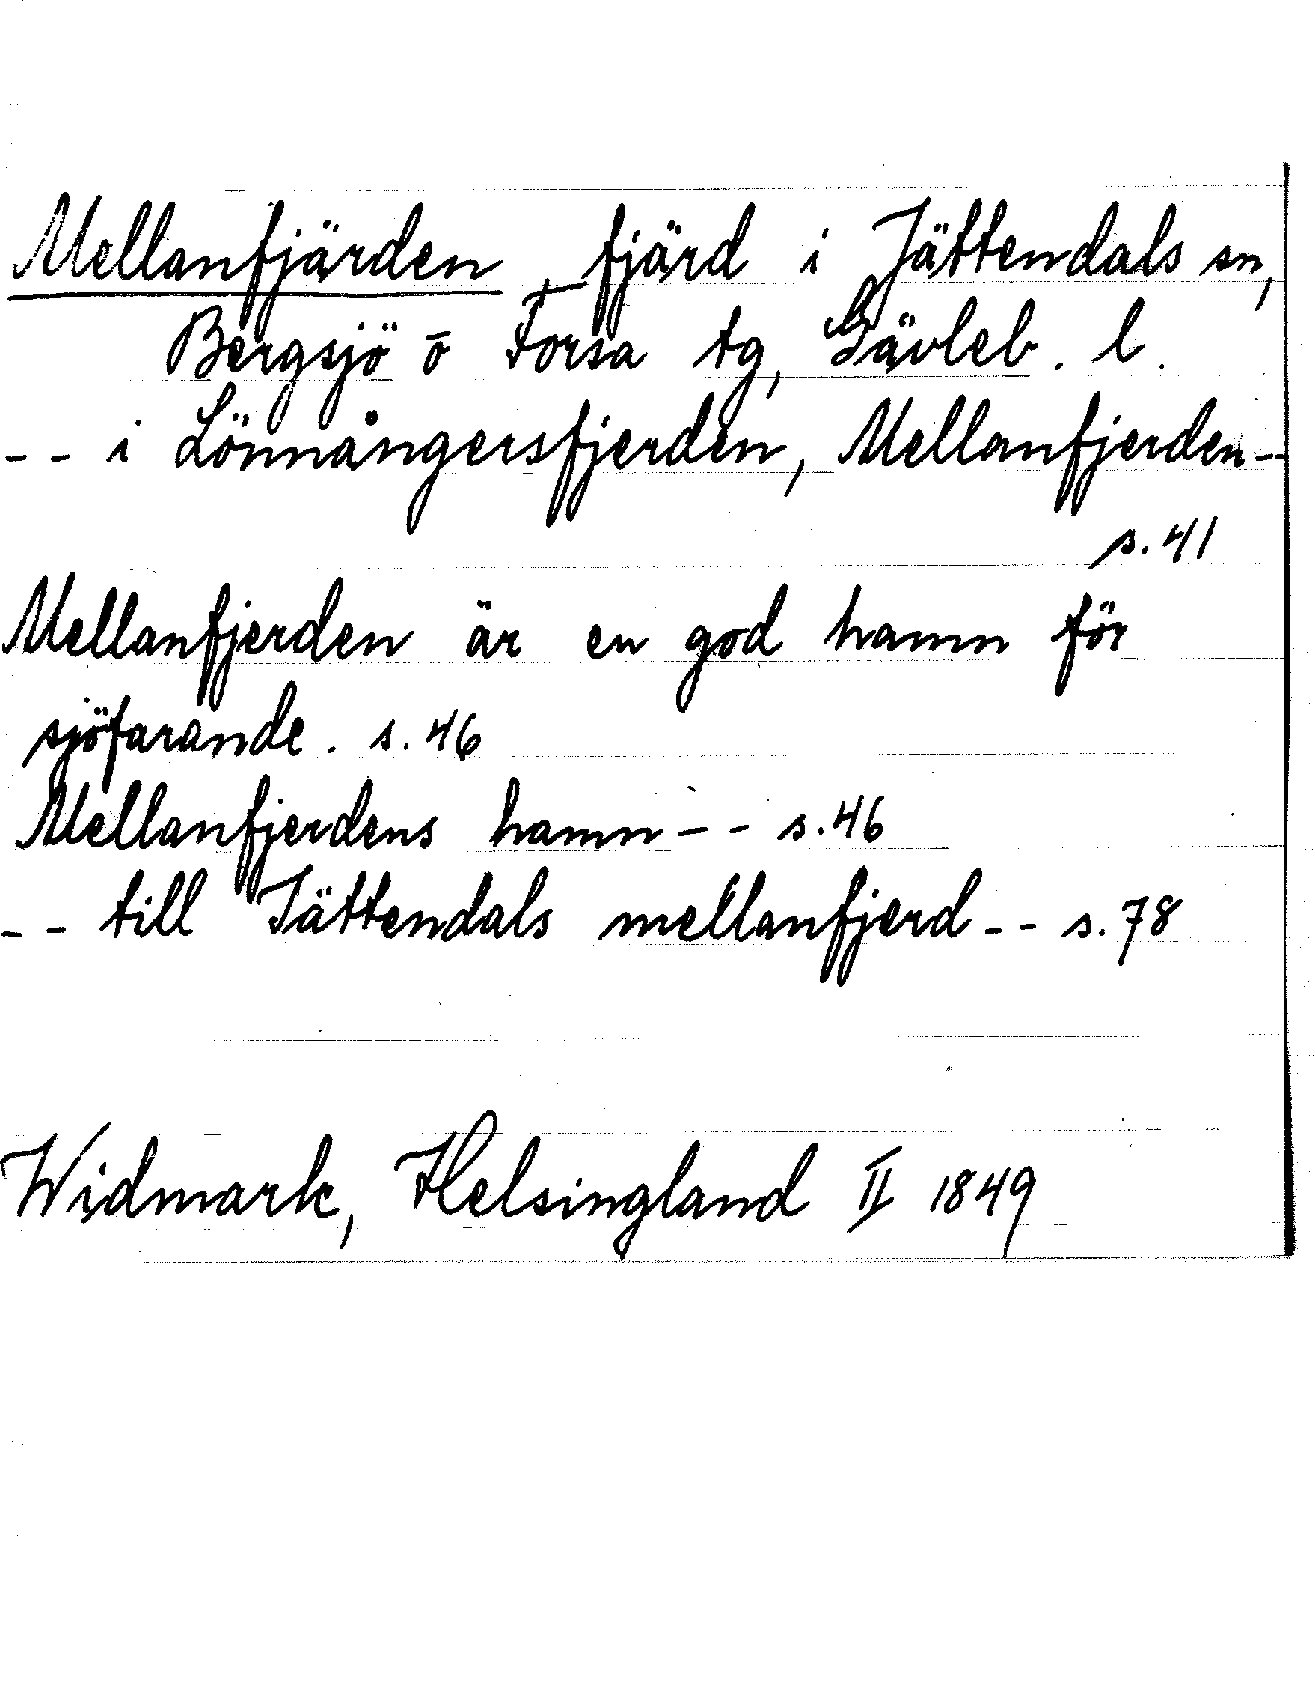 Mellanfjärden, fjärd i Jättendals sn,
Bergsjö o Forsa tg, Gävleb. l.
-- i Lönnångersfjerden, Mellanfjerden--
s. 41
Mellanfjerden är en god hamn för
sjöfarande. s. 46
Mellanfjerdens hamn -- s. 46
-- till Jättendals mellanfjerd -- s. 78
Widmark, Helsingland II 1849